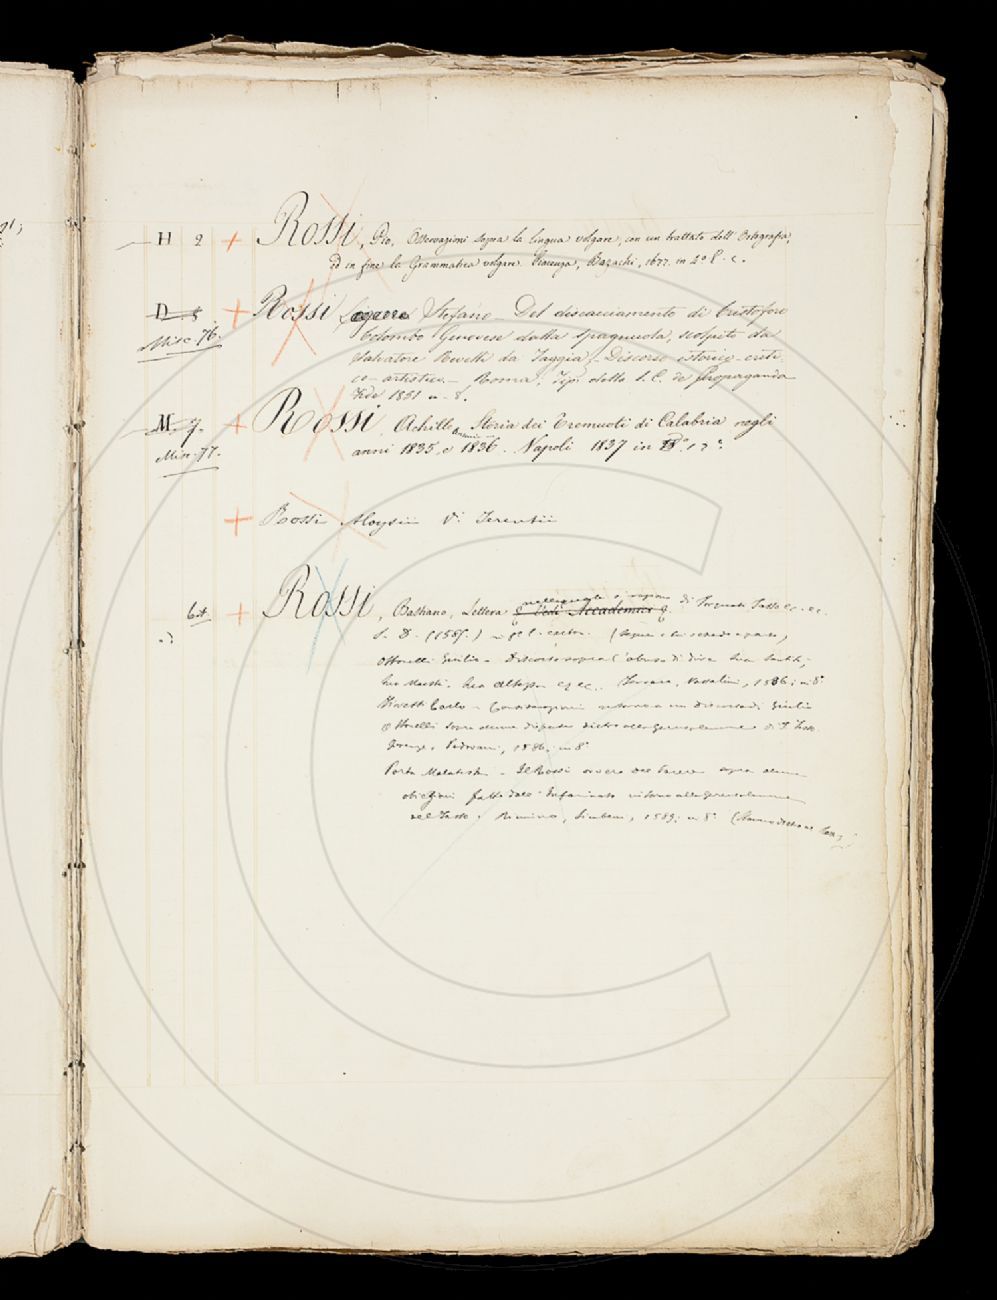 H 2 + Rossi, Pio, Osservazioni sopra la lingua volgare, con un trattato dell' Ortografia,
ed in fine la Grammatica volgare. Piacenza, Bazachi, 1677. in 4º p. c.
D 5 + Rossi Stefano - Del discacciamento di Cristoforo
Misc. 76. Colombo Genovese dalla Spagnuola, scolpito da
Salvatore Revelli da Taggia, - Discorso istorico-criti
co-artistico. - Roma, Tip. della S. C. de Propaganda
Fide 1851 in-8.
M. 9. + Rossi Achille Antonio Storia dei Tremuoti di Calabria negli
Misc. 77. anni 1835, e 1836. Napoli 1837 in
+ Rossi Aloysii Vi: Terentii
6 + Rossi, Bastiano, Lettera nella quale si ragiona di Torquato Tasso ec. ec.
S. D. (1585.) in
Ottonelli Giulio - Discorso sopra l'abuso di dire Sua Santità,
Sua Maestà, Sua Altezza ec. Ferrara, Vassalini, 1586; in 8º
Fioretti Carlo - Considerazioni intorno a un discorso di Giulio
Ottonelli sopra alcune dispute dietro alla Gerusalemme di T. Tasso
Firenze, Padovani, 1586; in 8º
Porta Malatesta - Il Rossi ovvero del Parere sopra alcune
obiezioni fatte dall' Infarinato intorno alla Gerusalemme
del Tasso, Rimino, Simbeni, 1589; in 8º